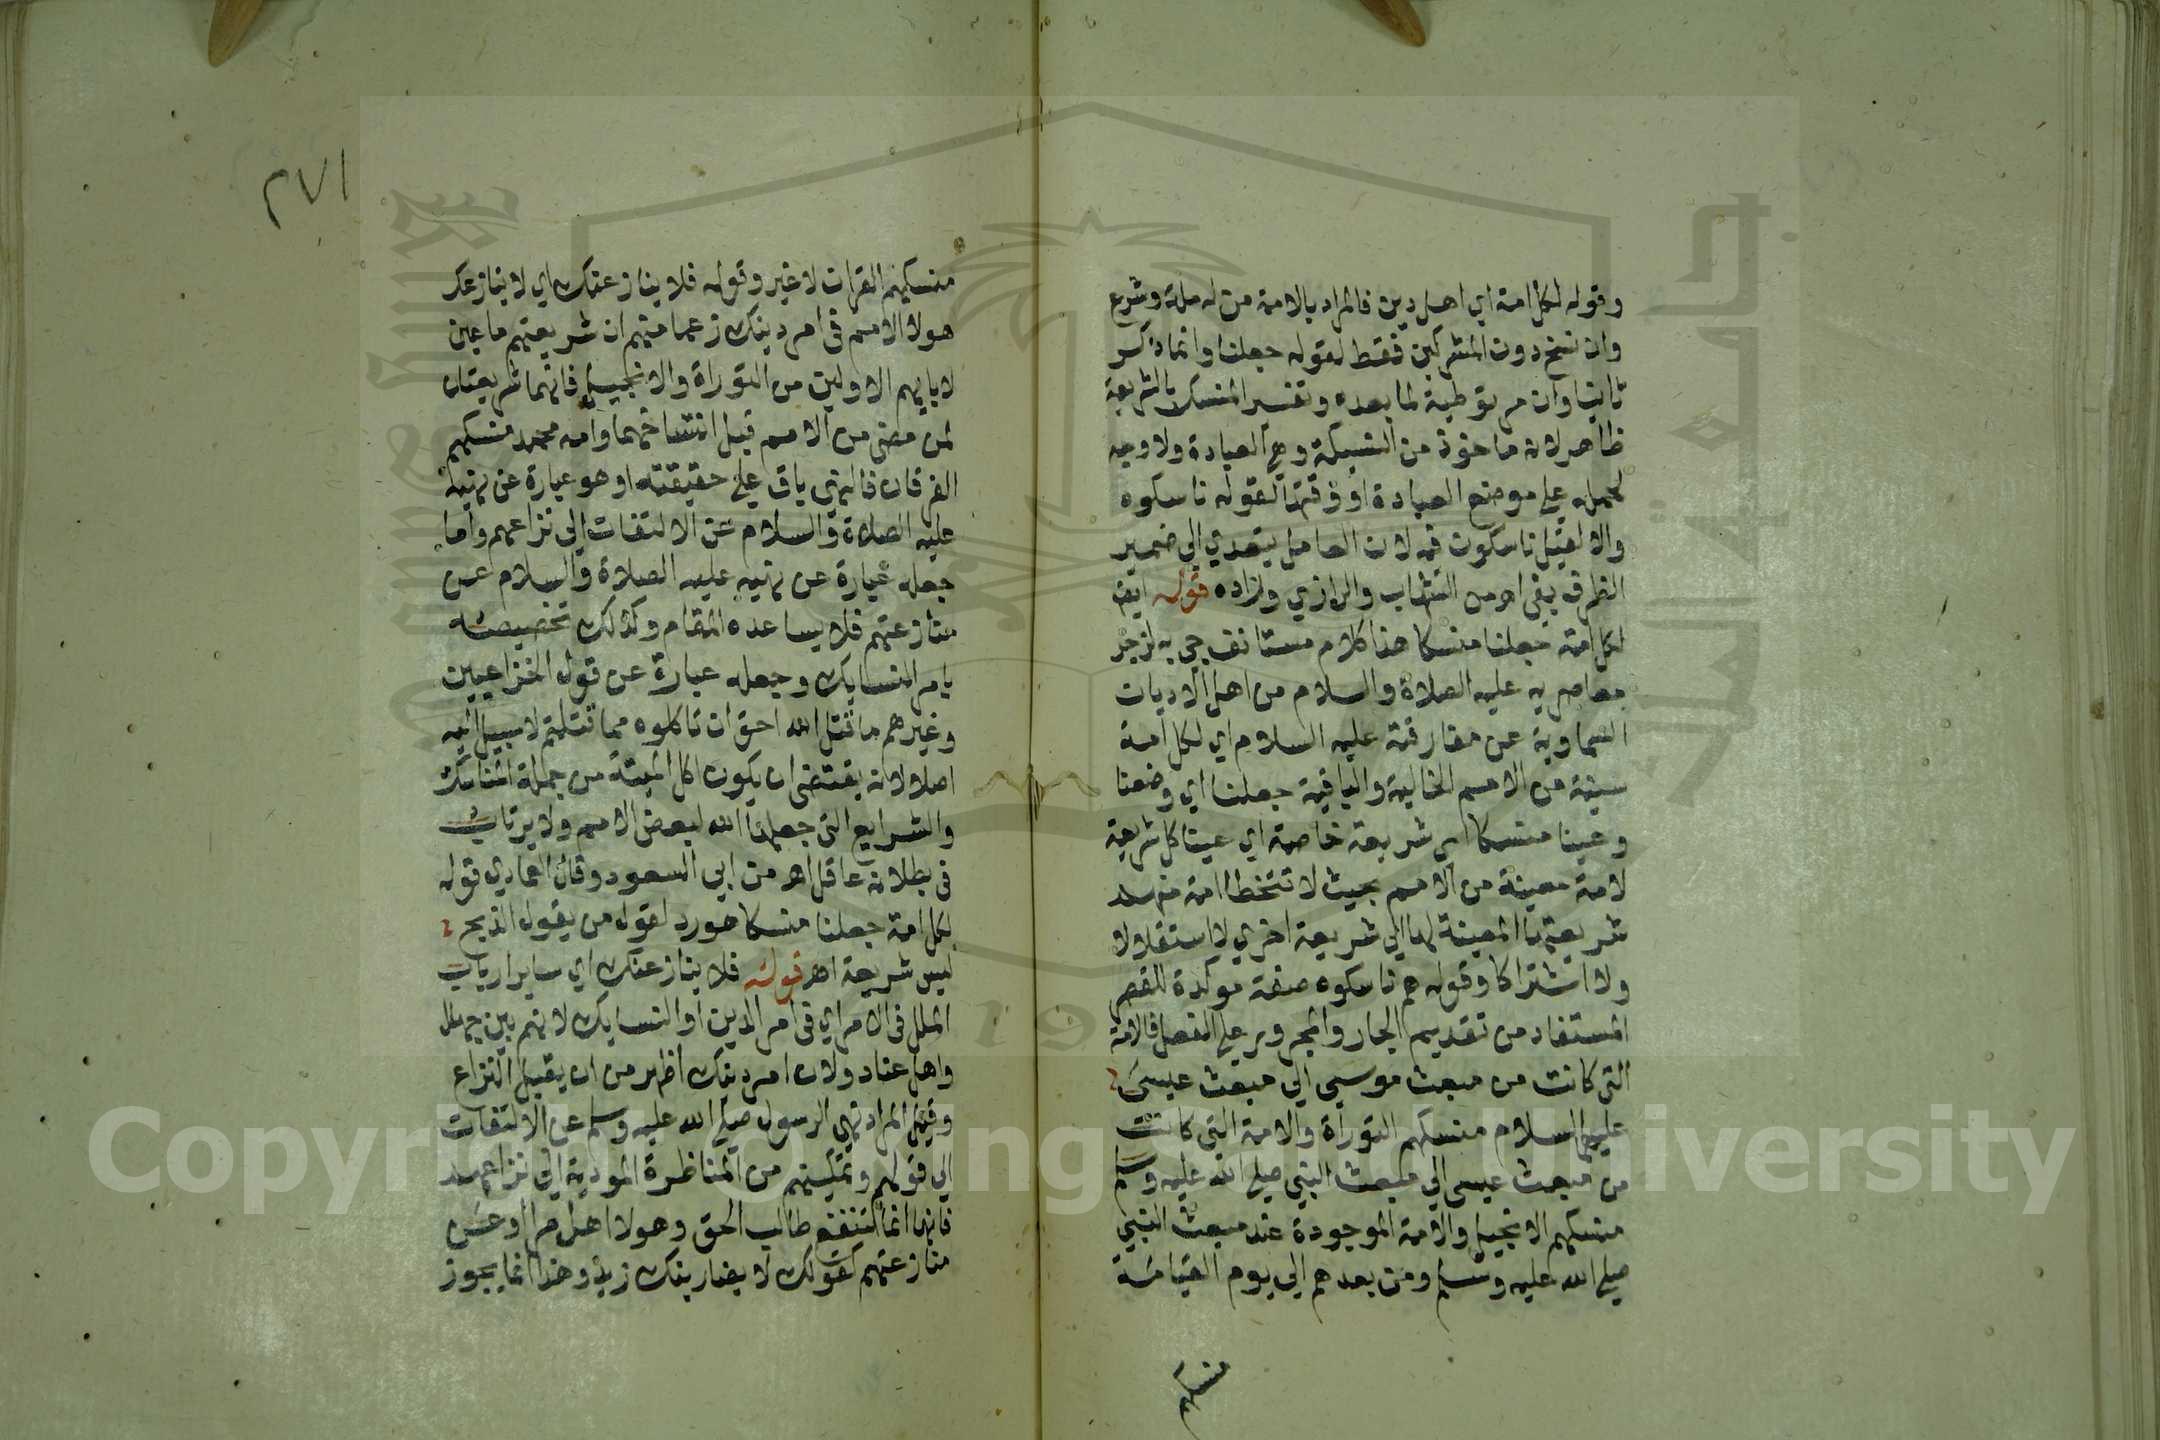 وقوله لكل امة اي اهل دين فالمراد بالامة من له ملة وشرع
وان نسخ دون المشركين فقط لقوله جعلنا وانما ذكر
ثانيا وان مر توطية لما بعده وتفسير المنسك بالشريعة
ظاهر لانه ماخوذ من النسيكة وهي العبادة ولا وجه
لحمله على موضع العبادة او وقتها لقوله ناسكوه
والا لقيل ناسكون فيه لان العامل يتعدي الي ضمير
الظرف بفي اهـ من الشهاب والرازي وزاده قوله ايضا
لكل امة جعلنا منسكا هذا كلام مستانف جي به لزجر
معاصريه عليه الصلاة والسلام من اهل الاديان
السماوية عن مفارقته عليه السلام اي لكل امة
معينة من الامم الخالية والباقية جعلنا اي وضعنا
وعينا منسكا اي شريعة خاصة اي عينا كل شريعة
لامة معينة من الامم بحيث لا تتخطا امة منهم
شريعتها المعينة لها الي شريعة اخري لا استقلالا
ولا اشتراكا وقوله هم ناسكوه صفة موكدة للقصر
المستفاد من تقديم الجار والمجرور علي الفعل فالامة
التي كانت من مبعث موسي الي مبعث عيسى
عليهما السلام منسكهم التوراة والامة التي كانت
من مبعث عيسى الي مبعث النبي صلى الله عليه وسلم
منسكهم الانجيل والامة الموجودة عند مبعث النبي
صلى الله عليه وسلم ومن بعدهم الي يوم القيامة
منسكهم
٢٧١
منسكهم القرات لا غير وقوله فلا ينازعنك اي لا ينازعك
هولا الامم في امر دينك زعما منهم ان شريعتهم ما عين
لابايهم الاولين من التوراة والانجيل فانهما شريعتان
لمن مضى من الامم قبل انتساخهما وامة محمد منسكهم
الفرقان فالنهي باق على حقيقته او هو عبارة عن نهيه
عليه الصلاة والسلام عن الالتفات الي نزاعهم واما
جعله عبارة عن نهيه عليه الصلاة والسلام عن
منازعتهم فلا يساعده المقام وكذلك تخصيصه
بامر النسايك وجعله عبارة عن قول الخزاعيين
وغيرهم ما قتل الله احق ان تاكلوه مما قتلتم لا سبيل اليه
اصلا لانه يقتضي ان يكون اكل الميتة من جملة المناسك
والشرايع التي جعلها الله لبعض الامم ولا يرتاب
في بطلانه عاقل اهـ من ابي السعود وقال العمادي قوله
لكل امة جعلنا منسكا هو رد لقول من يقول الذبح
ليس شريعة اهـ قوله فلا ينازعنك اي ساير ارباب
الملل في الامر اي في امر الدين او النسايك لانهم بين جهال
واهل عناد ولان امر دينك اظهر من ان يقبل النزاع
وقيل المراد نهي الرسول صلى الله عليه وسلم عن الالتفات
الي قولهم وتمكينهم من المناظرة المودية الي نزاعهم
فانها انما تنفع طالب الحق وهولا اهل مرا او عن
منازعتهم كقولك لا يضاربنك زيد وهذا انما يجوز